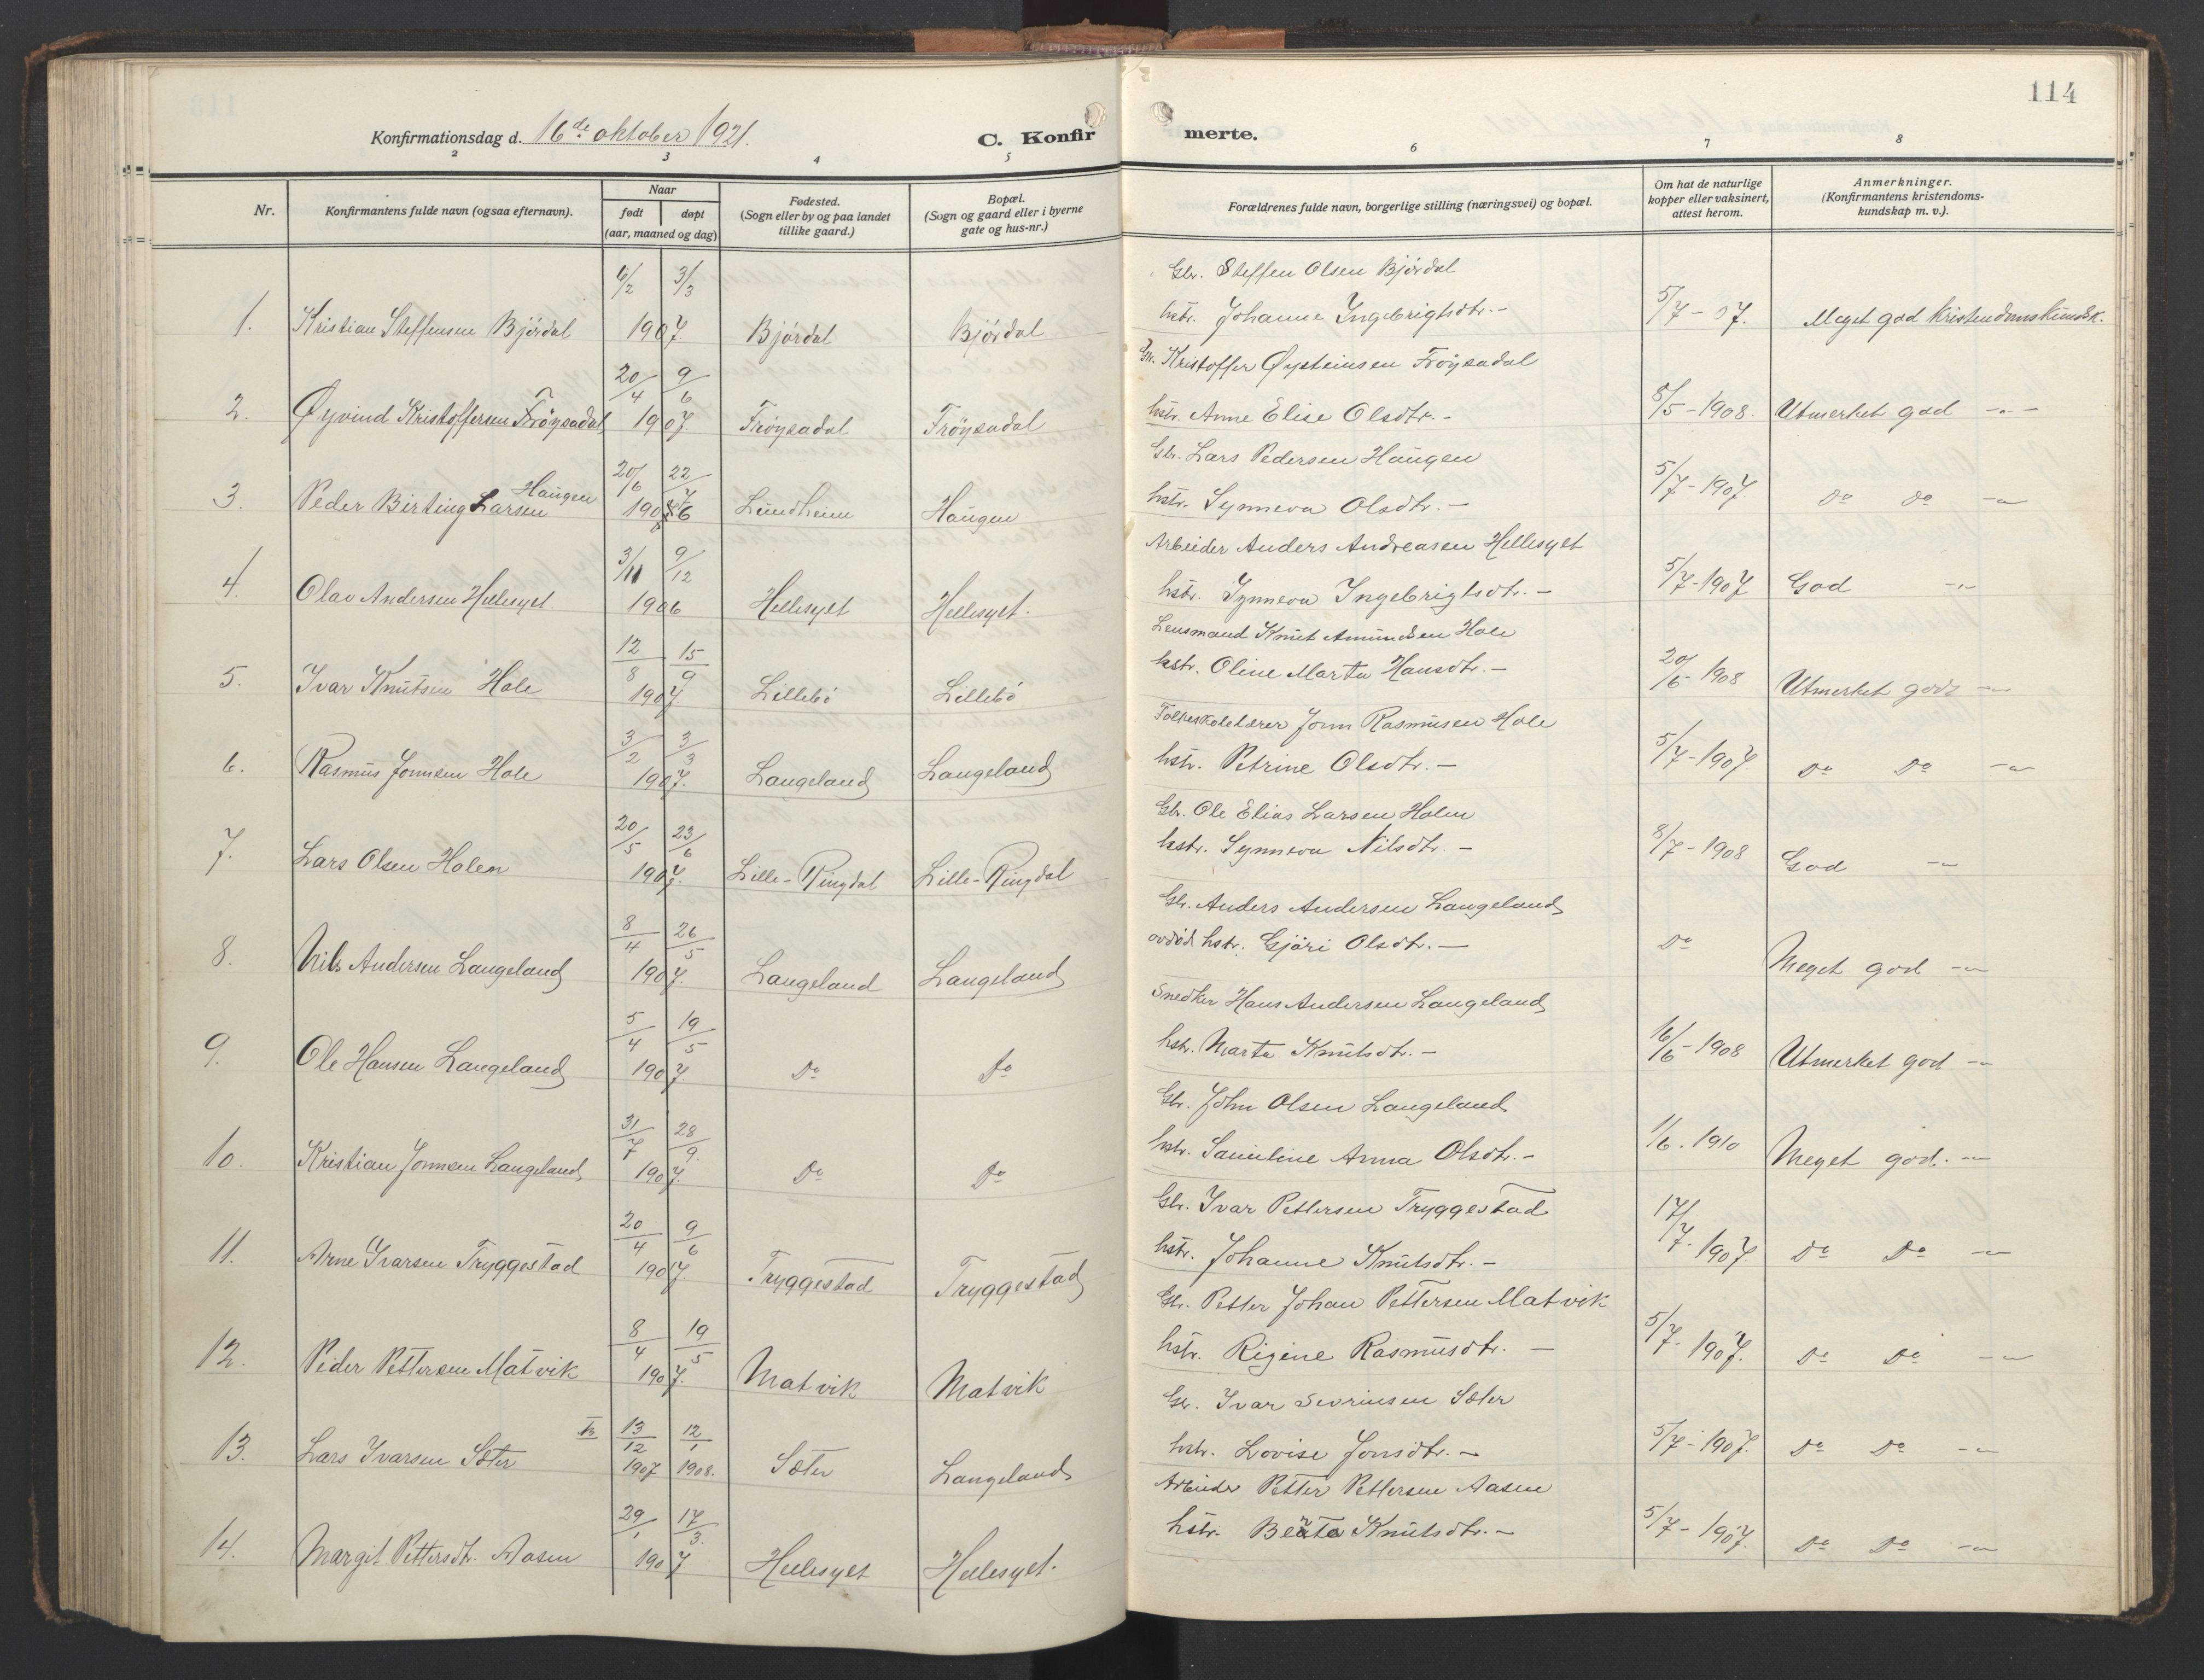 114
Konfirmationsdag d. 16de oktober 1921.
C. Konfirmerte.
2 3 4 5 6 7 8
Nr.
Konfirmantens fulde navn (ogsaa efternavn).
Naar
født døpt
(aar, maaned og dag)
Fødested.
(Sogn eller by og paa landet
tillike gaard.)
Bopæl.
(Sogn og gaard eller i byerne
gate og hus-nr.)
Forældrenes fulde navn, borgerlige stilling (næringsvei) og bopæl.
Om hat de naturlige
kopper eller vaksinert,
attest herom.
Anmerkninger.
(Konfirmantens kristendoms-
kundskap m. v.).
6/2 3/3 Gbr. Steffen Olsen Björdal
1. Kristian Steffensen Björdal 1907. Björdal Björdal hstr. Johanne Ingebrigtsdtr. - 5/7 - 07. Meget god kristendomskundsk.
20/4 9/6 Gbr. Kristoffer Øysteinsen Fröysadal
2. Øyvind Kristoffersen Fröysadal 1907. Fröysadal Fröysadal hstr. Anne Elise Olsdtr. - 8/5 - 1908. Utmerket god -"-
20/6 22/7 Gbr. Lars Pedersen Haugen
3. Peder Birting Larsen Haugen 1906 Lundheim Haugen hstr. Synneva Olsdtr. - 5/7 - 1907. Do Do -"-
3/11 9/12 Arbeider Anders Andreasen Hellesylt
4. Olav Andersen Hellesylt. 1906 Hellesylt Hellesylt. hstr. Synneva Ingebrigtsdtr. - 5/7 - 1907 God -"-
12/8 15/9 Lensmand Knut Amundsen Hole
5. Ivar Knutsen Hole 1907 Lillebö Lillebö hstr. Oline Marta Hansdtr. - 20/6 - 1908 Utmerket god -"-
3/2 3/3 Folkeskolelærer Jonn Rasmusen Hole
6. Rasmus Jonnsen Hole 1907. Langeland Langeland hstr. Petrine Olsdtr. - 5/7 - 1907. Do Do -"-
20/5 23/6 Gbr. Ole Elias Larsen Holen
7. Lars Olsen Holen 1907. Lille-Ringdal Lille-Ringdal hstr. Synneva Nilsdtr. - 8/7 - 1908 God -"-
8/4 26/5 Gbr. Anders Andersen Langeland
8. Nils Andersen Langeland 1907. Langeland Langeland avdöd hstr. Gjöri Olsdtr. - Do Meget god -"-
5/4 19/5 Snedker Hans Andersen Langeland
9. Ole Hansen Langeland 1907. Do Do hstr. Marta Knutsdtr. - 16/6 - 1908 Utmerket god -"-
31/7 28/9. Gbr. John Olsen Langeland
10. Kristian Jonnsen Langeland 1907. Do Do hstr. Sauiline Anna Olsdtr. - 1/6. 1910 Meget god. -"-
20/4 9/6 Gbr. Ivar Pettersen Tryggestad
11. Arne Ivarsen Tryggestad 1907. Tryggestad Tryggestad hstr. Johanne Knutsdtr. - 17/7. 1907. Do Do -"-
8/4 19/5 Gbr. Petter Johan Pettersen Matvik
12. Peder Pettersen Matvik 1907. Matvik Matvik hstr. Rigine Rasmusdtr. - 5/7. 1907. Do Do -"-
13/12 12/1 Gbr. Ivar Sevrinsen Sæter
13. Lars Ivarsen Sæter 1907 1908. Sæter Langeland hstr. Lovise Jonsdtr. - 5/7 - 1907. Do Do -"-
29/1 17/3. Arbeider Petter Pettersen Aasen
14. Margit Pettersdtr. Aasen 1907 Hellesylt Hellesylt. hstr. Beata Knutsdtr. - 5/7 - 1907. Do Do -"-